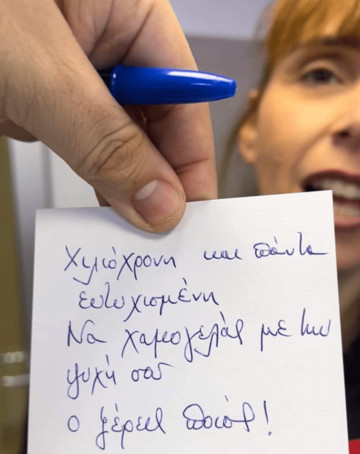 Χιλιόχρονη και πάντα
ευτυχισμένη
Να χαμογελάς με την
ψυχή σου
ο ξέρεις ποιός!